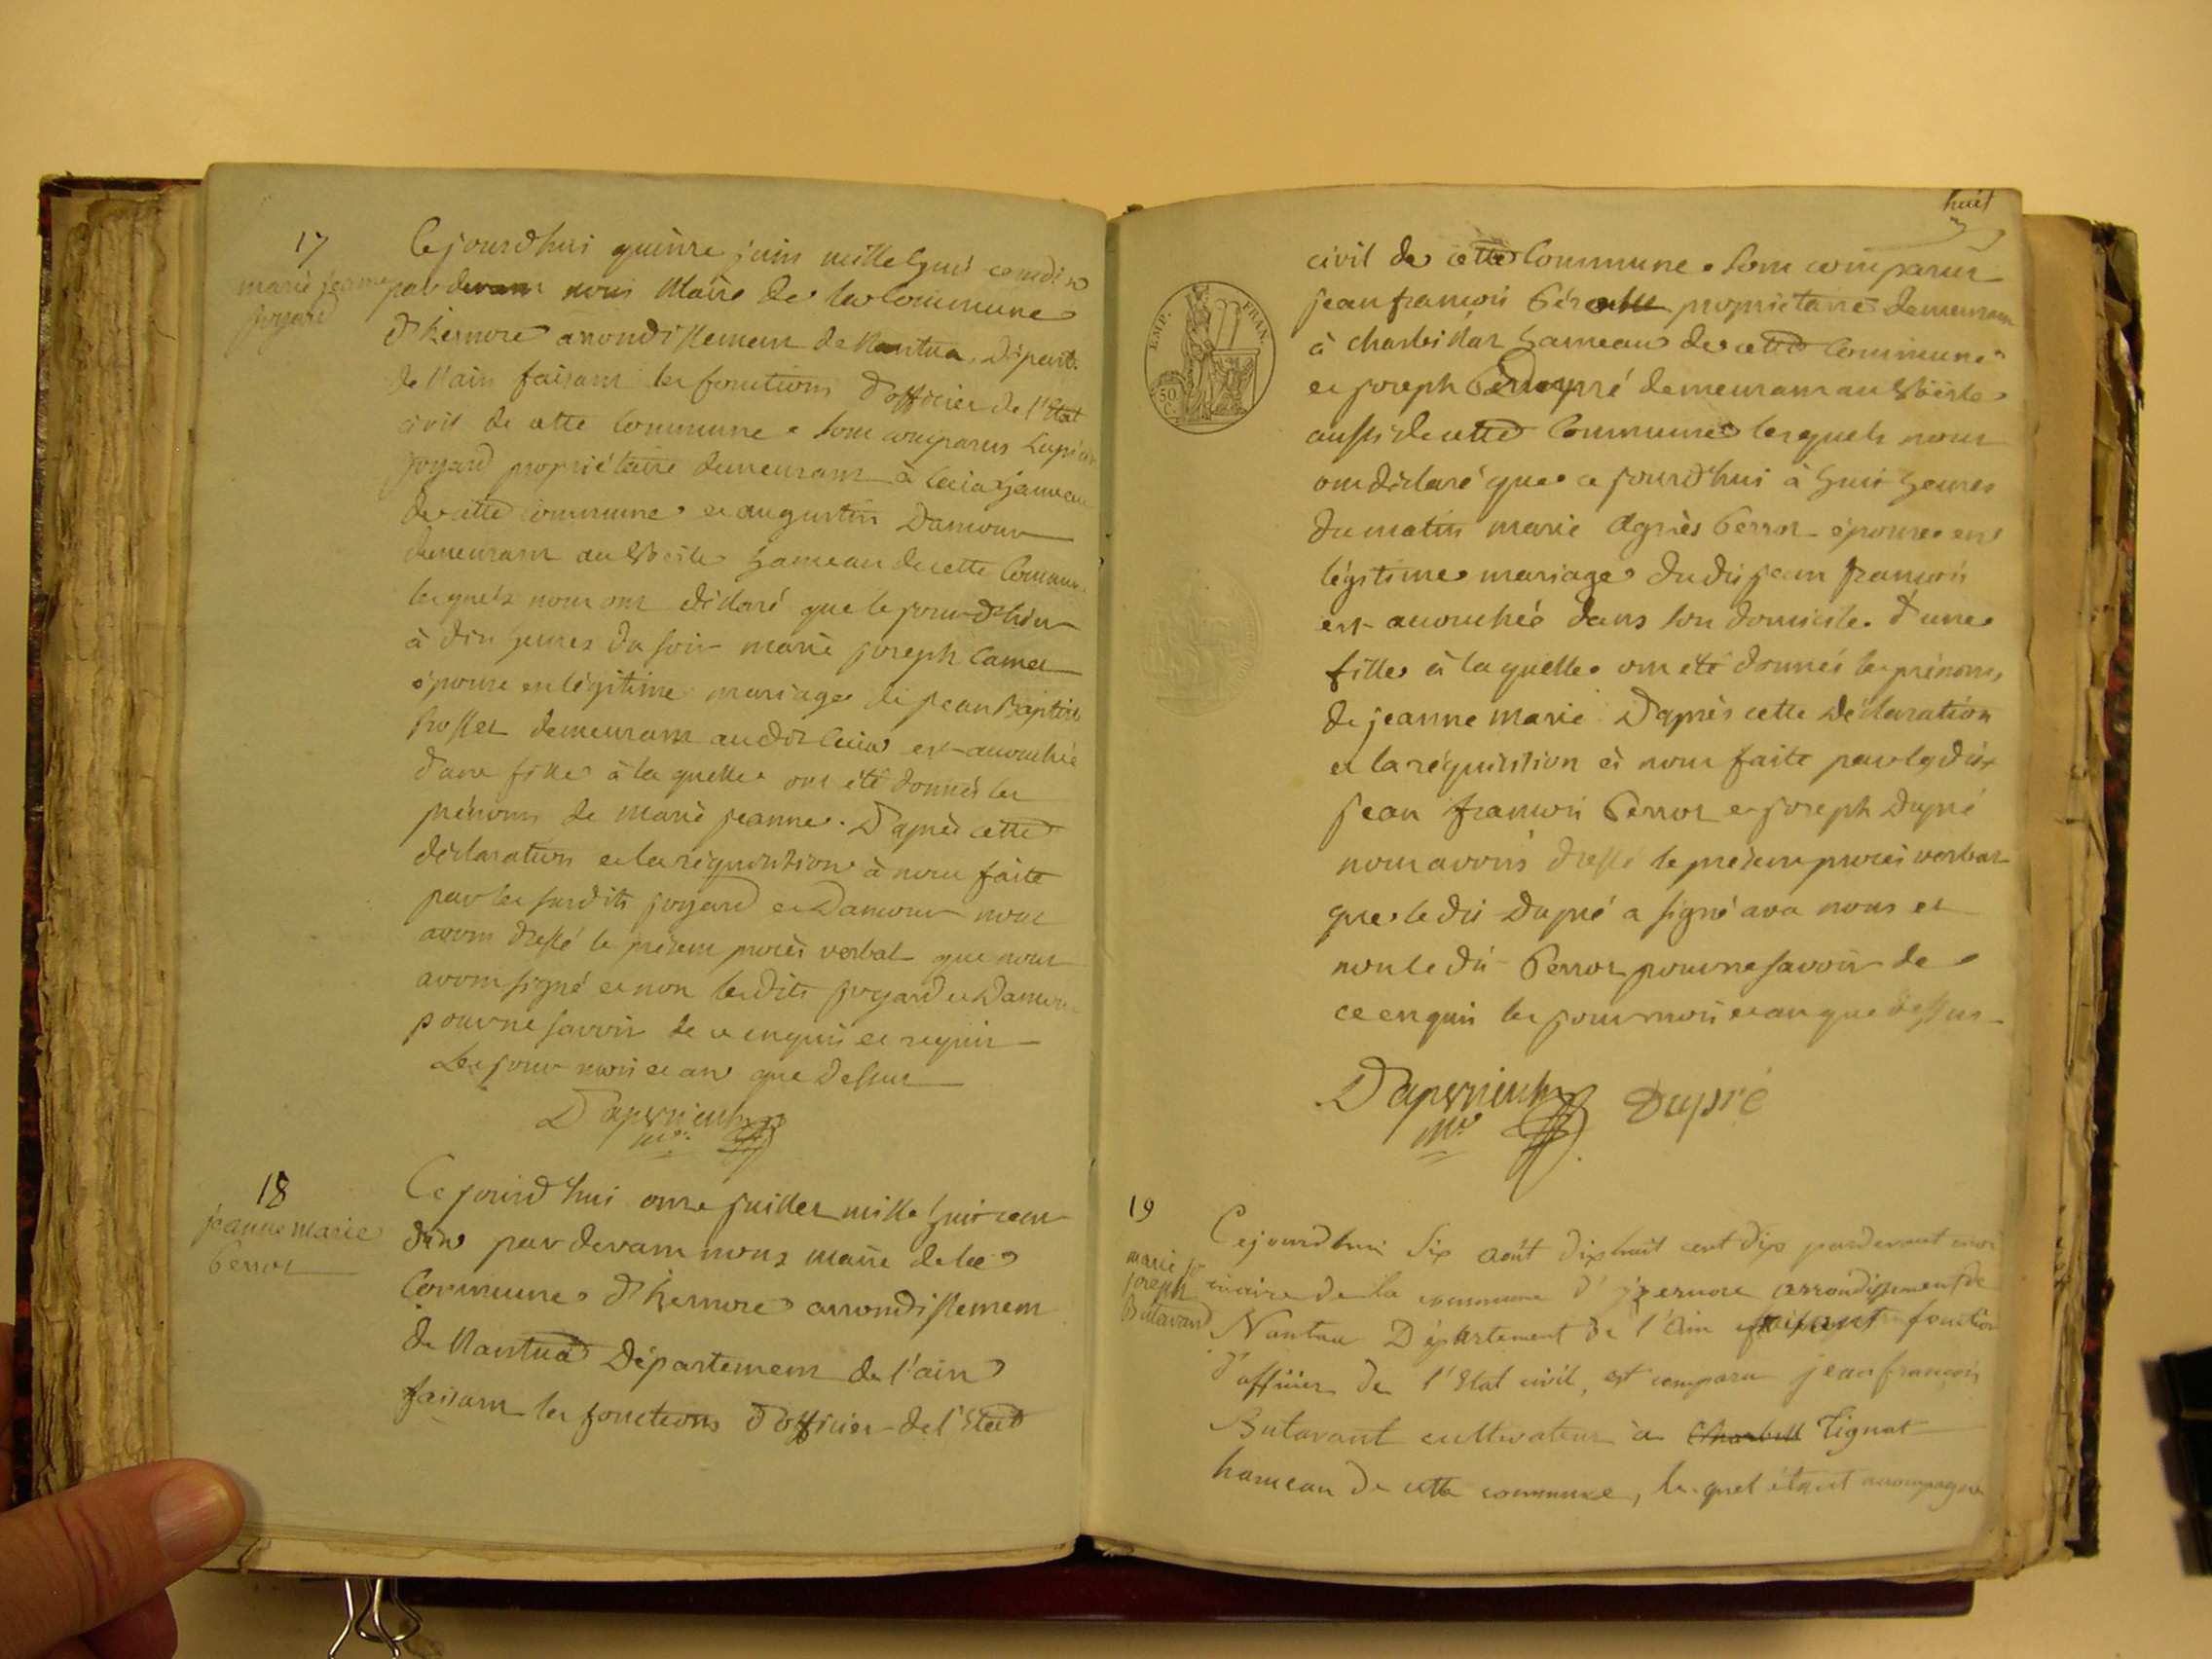 17
marie jeanne
joyard
Cejourd'hui quinze juin mille huit cent dix
pardevant nous Maire de la Commune
d'hernore arrondissement de Nantua, départ.
de l'ain faisant les fonctions d'officier de l'Etat
civil de cette Commune. Sont comparus Lupicin
joyard propriétaire demeurant à Ceia hameau
de cette commune et augustin Damour
demeurant au Voërle hameau de cette Commune
lesquels nous ont déclaré que le jour d'hier
à dix heures du soir marie joseph Camet
épouse en légitime mariage de jean Baptiste
demeurant audit Ceia est accouchée
d'une fille à laquelle ont été donnés les
prénoms de marie jeanne. D'après cette
déclaration et la réquisition à nous faite
par les susdits joyard et Damour nous
avons dressé le présent procès verbal que nous
avons signé et non lesdits joyard et Damour
pour ne savoir de ce enquis et requis
Les jour mois et an que dessus
Dapvrieulx
m.re
18
jeanne marie
Perrot
Cejourd'hui onze juillet mille huit cent
dix pardevant nous maire de la
Commune d'hernore arrondissement
de Nantua Département de l'ain
faisant les fonctions d'officier de l'Etat
huit
EMP. FRAN.
50 C.
civil de cette Commune. Sont comparus
jean françois Perrot propriétaire demeurant
à charbillat hameau de cette Commune
et joseph Dupré demeurant au Voërle
aussi de cette Commune lesquels nous
ont déclaré que ce jourd'hui à huit heures
du matin marie Agnès Perrot épouse en
légitime mariage dudit jean françois
est accouchée dans son domicile d'une
fille à laquelle ont été donnés les prénoms
de jeanne marie. D'après cette déclaration
et la réquisition à nous faite par lesdits
jean françois Perrot et joseph Dupré
nous avons dressé le présent procès verbal
que ledit Dupré a signé avec nous et
non ledit Perrot pour ne savoir de
ce enquis les jour mois et an que dessus
Dapvrieulx
m.re
Dupré
19
marie
joseph
Butavand
Cejourd'hui Six août dix huit cent dix pardevant moi
maire de la commune d'izernore arrondissement de
Nantua Département de l'Ain faisant fonction
d'officier de l'Etat civil, est comparu jean françois
Butavant cultivateur à Charbill Tignat
hameau de cette commune, lequel était accompagné